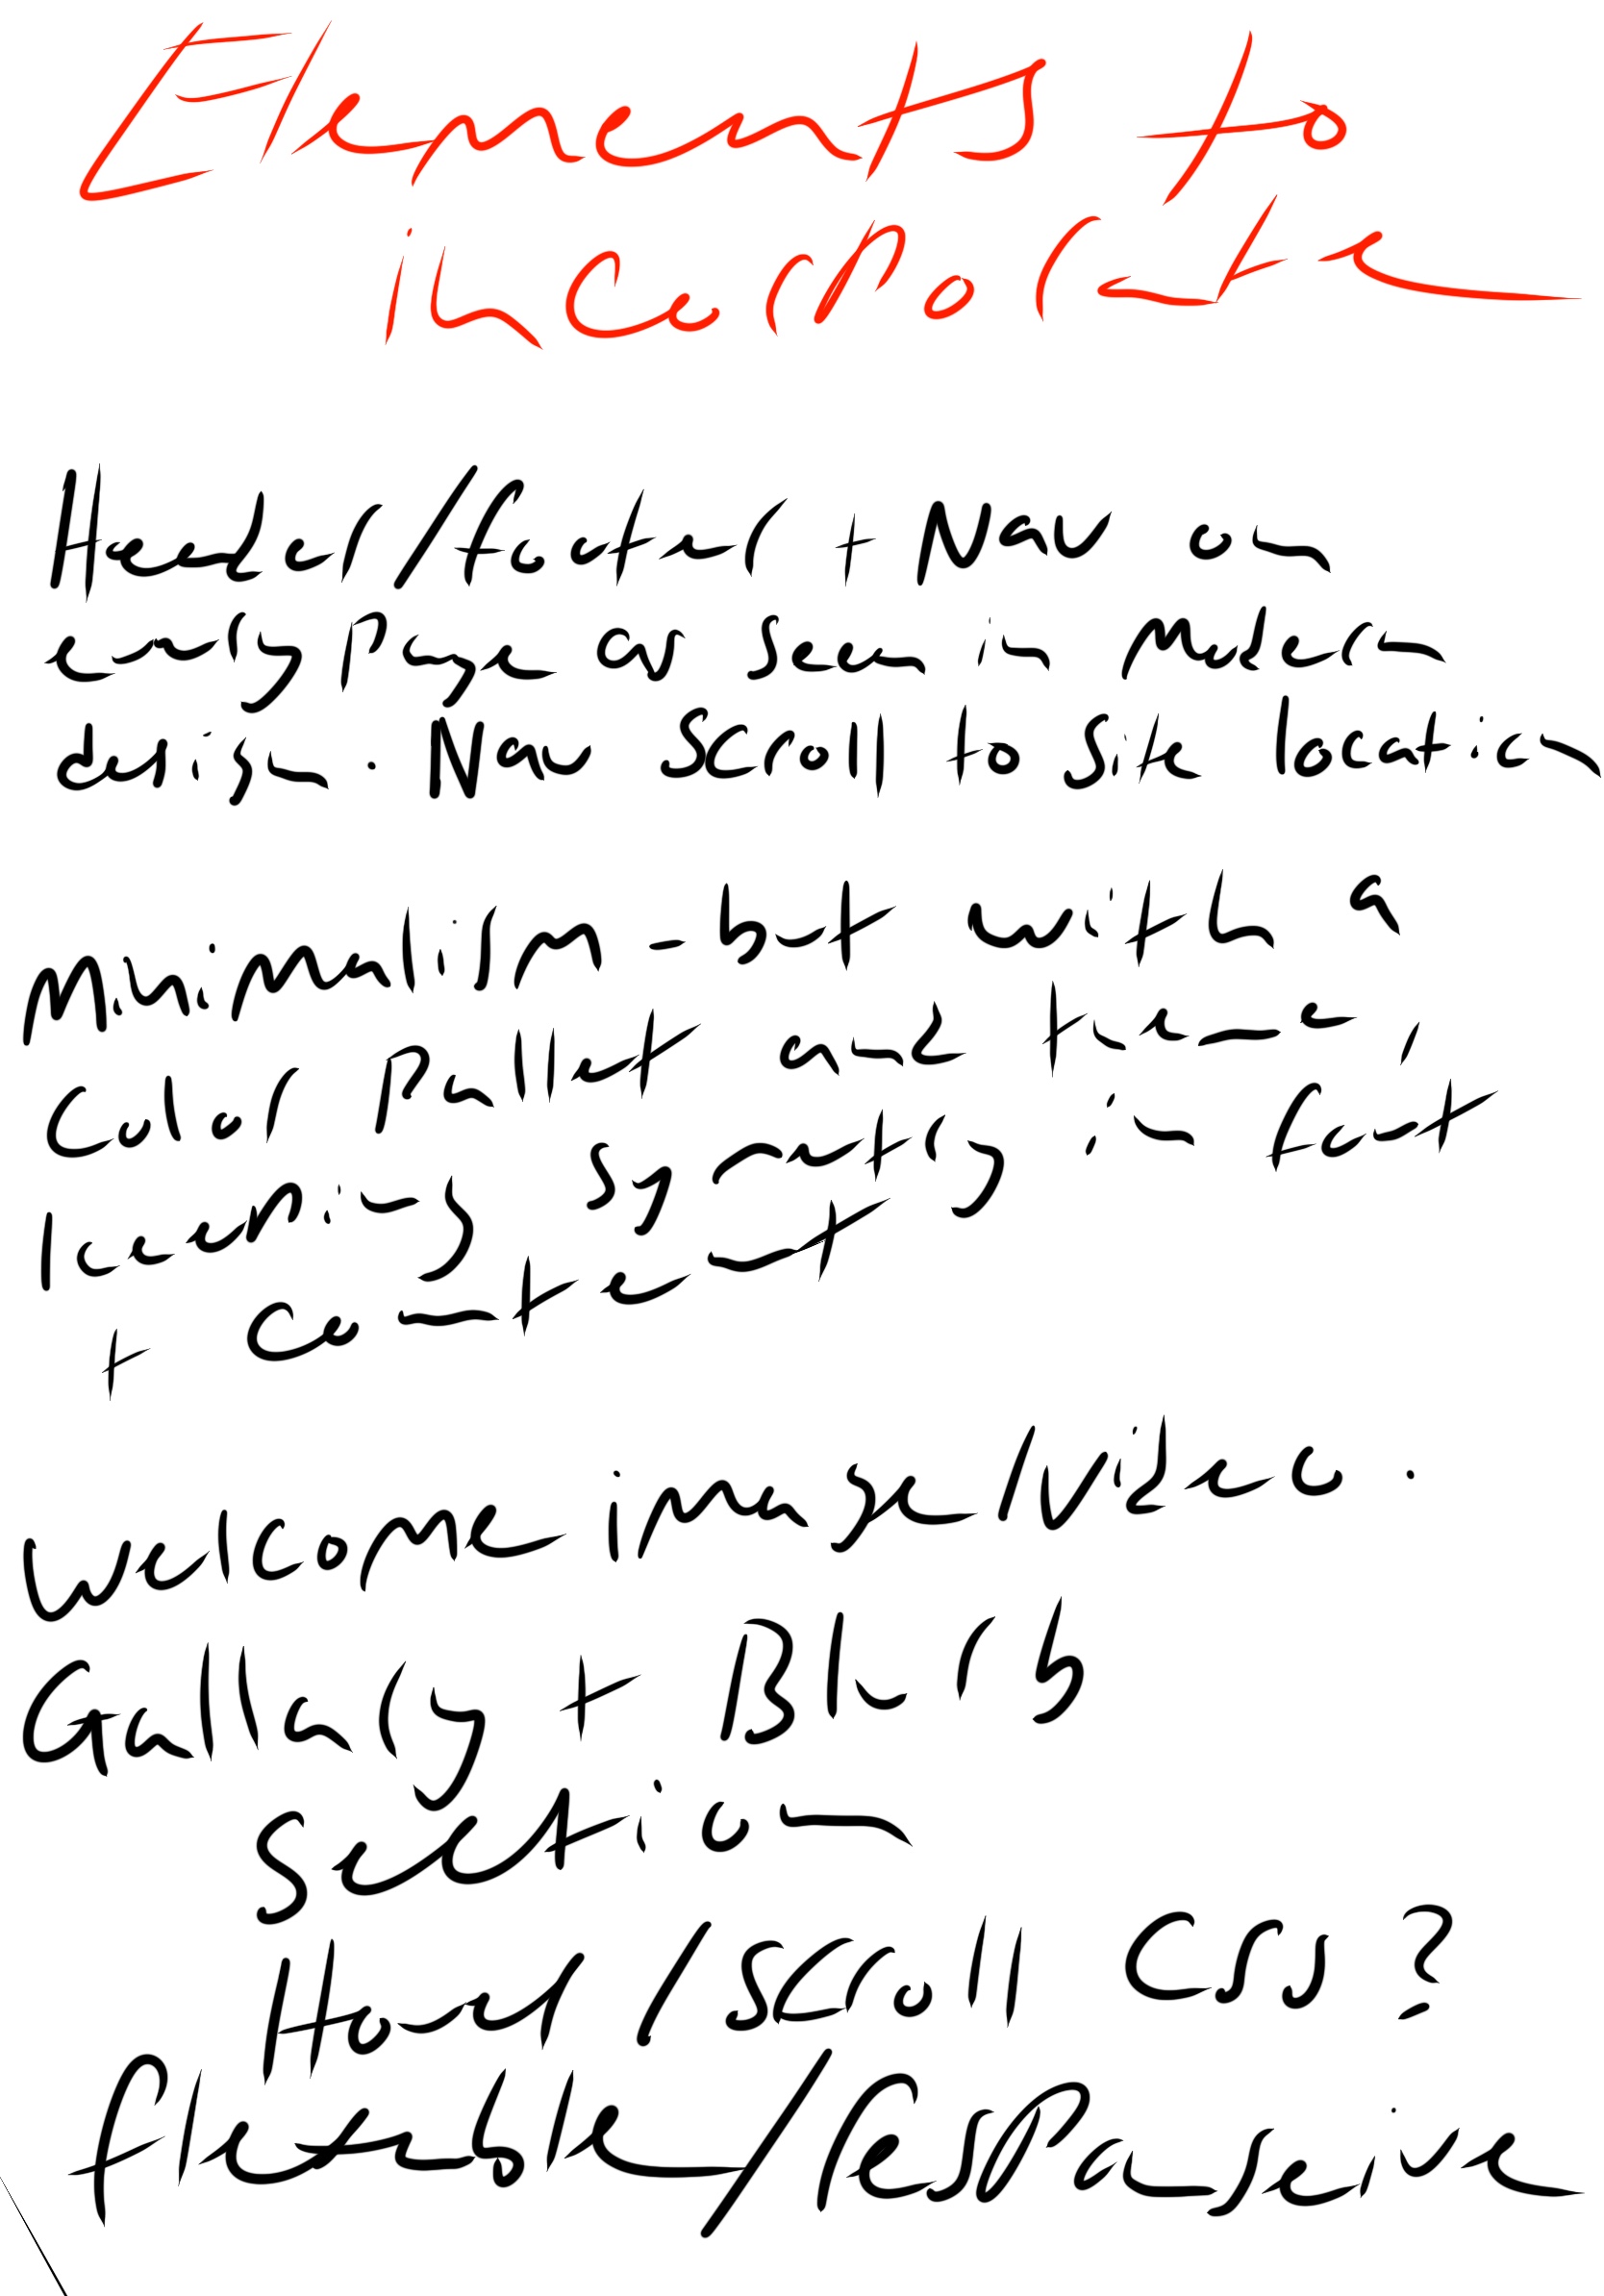 Elements to
incorporate
Header/footer + Nav on
every Page as seen in Modern
design. Nav scroll to site location
Minimalism - but with a
Color Pallet and theme,
keeping symmetry in font
+ content
Welcome image/video.
Gallary + Blurb
Section
Hover / scroll CSS?
flexible/responsive